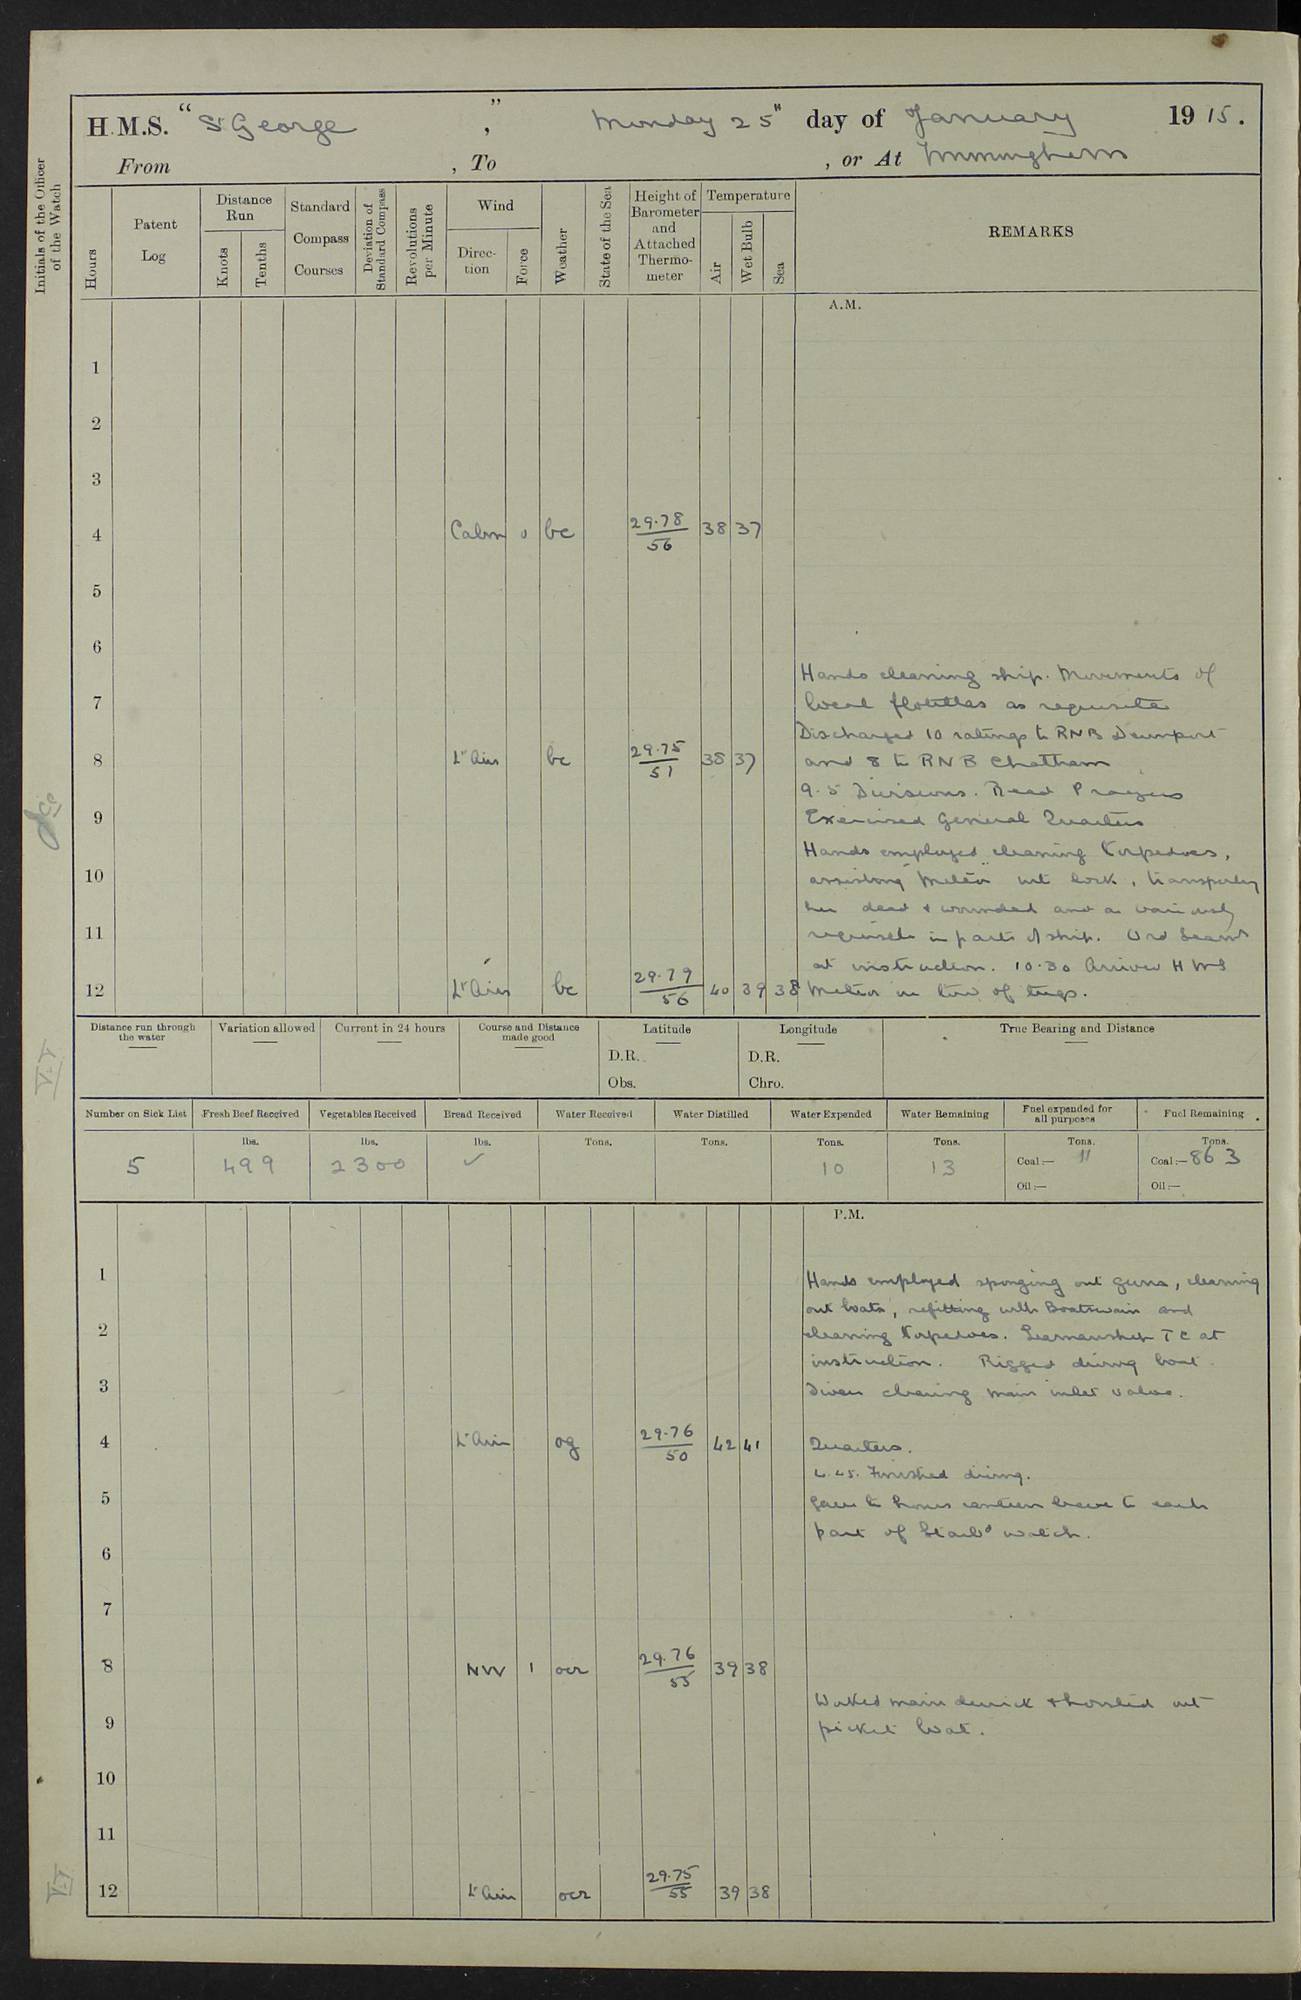 H.M.S. "St George", Monday 25th day of January 1915.
From , To , or At Immingham
Initials of the Officer of the Watch
Hours
Patent Log
Distance Run
Knots
Tenths
Standard Compass Courses
Deviation of Standard Compass
Revolutions per Minute
Wind
Direction
Force
Weather
State of the Sea
Height of Barometer and Attached Thermometer
Temperature
Air
Wet Bulb
Sea
REMARKS
A.M.
1
2
3
4 Calm 0 bc 29.78/56 38 37
5
6
Hands cleaning ship. Movements of
7 local flotillas as requisite
Discharged 10 ratings to RNB Devonport
8 Lt Airs bc 29.75/51 38 37 and 8 to RNB Chatham
9.5 Divisions. Read Prayers
9 Exercised General Quarters
Hands employed cleaning torpedoes,
10 assisting "Meteor" into lock, transporting
her dead & wounded and as variously
11 requisite in parts of ship. Ord Seamn
at instruction. 10.30 Arrived HMS
12 Lt Airs bc 29.79/56 40 39 38 Meteor in tow of tugs.
Distance run through the water
Variation allowed
Current in 24 hours
Course and Distance made good
Latitude
D.R.
Obs.
Longitude
D.R.
Chro.
True Bearing and Distance
Number on Sick List
Fresh Beef Received
Vegetables Received
Bread Received
Water Received
Water Distilled
Water Expended
Water Remaining
Fuel expended for all purposes
Fuel Remaining
lbs. lbs. lbs. Tons. Tons. Tons. Tons. Tons. Tons.
5 499 2300 ✓ 10 13 Coal:— 11 Coal:— 863
Oil:— Oil:—
P.M.
1 Hands employed sponging out guns, cleaning
out boats, refitting with Boatswain and
2 cleaning torpedoes. Seamanship T C at
instruction. Rigged diving boat.
3 Divers clearing main inlet valve.
4 Lt Airs og 29.76/50 42 41 Quarters.
4.45. Finished diving.
5 Gave 2 hours canteen leave to each
part of Starbd watch.
6
7
8 NW 1 ocr 29.76/55 39 38
Worked main derrick & hoisted out
9 picket boat.
10
11
12 Lt Airs ocr 29.75/55 39 38